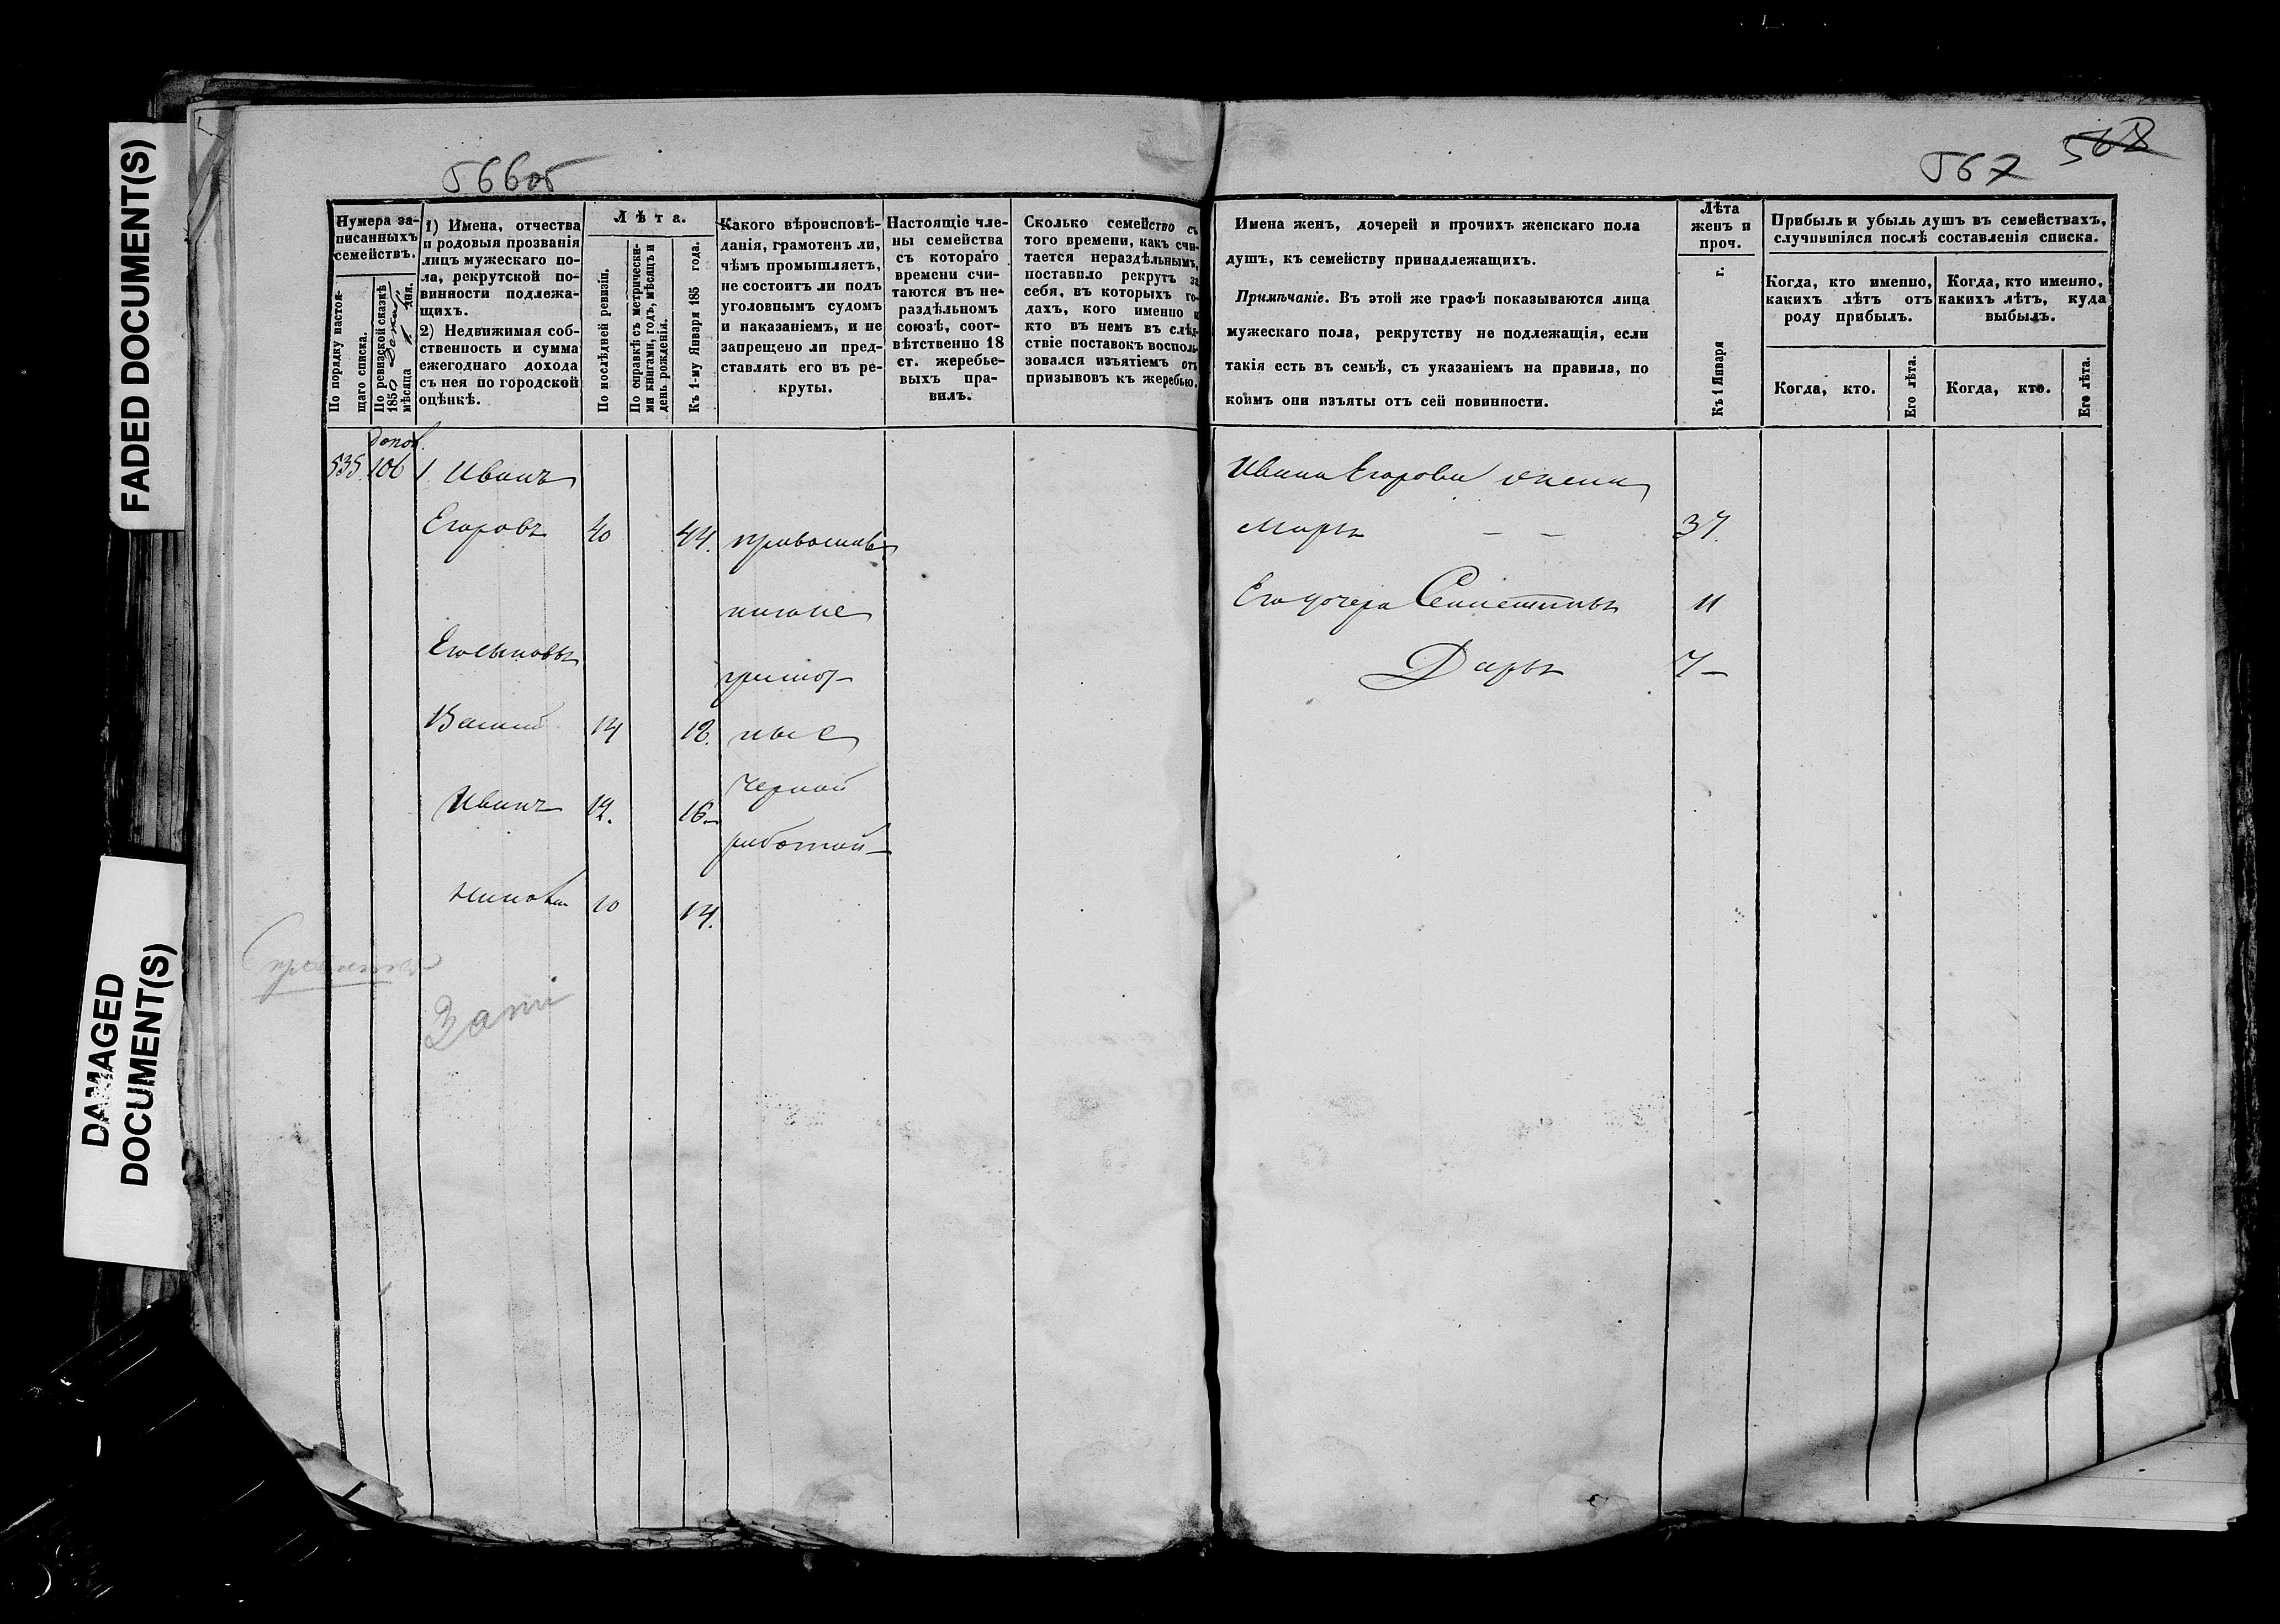 FADED DOCUMENT(S)
DAMAGED
DOCUMENT(S)
566об
Нумера за-
писанныхъ
семействъ.
По порядку настоя-
щаго списка.
По ревизской сказкѣ
1850
мѣсяца дня.
1) Имена, отчества
и родовыя прозванія
лицъ мужескаго по-
ла, рекрутской по-
винности подлежа-
щихъ.
2) Недвижимая соб-
ственность и сумма
ежегоднаго дохода
съ нея по городской
оцѣнкѣ.
Лѣта.
По послѣдней ревизіи.
По справкѣ съ метрически-
ми книгами, годъ, мѣсяцъ и
день рожденія.
Къ 1-му Января 185 года.
Какого вѣроисповѣ-
данія, грамотенъ ли,
чѣмъ промышляетъ,
не состоитъ ли подъ
уголовнымъ судомъ
и наказаніемъ, и не
запрещено ли пред-
ставлять его въ ре-
круты.
Настоящіе чле-
ны семейства
съ котораго
времени счи-
таются въ не-
раздѣльномъ
союзѣ, соот-
вѣтственно 18
ст. жеребье-
выхъ пра-
вилъ.
Сколько семейство съ
того времени, какъ счи-
тается нераздѣльнымъ,
поставило рекрутъ за
себя, въ которыхъ го-
дахъ, кого именно и
кто въ немъ въ слѣд-
ствіе поставокъ восполь-
зовался изъятіемъ отъ
призывовъ къ жеребью.
допол.
535. 106 1. Иванъ
Егоровъ 40 44. православ
ные
Его сыновья
грамот-
Василій 14 18. ные
Иванъ 12. 16.
Черной
работой
10 14.
567 568
Имена женъ, дочерей и прочихъ женскаго пола
душъ, къ семейству принадлежащихъ.
Примѣчаніе. Въ этой же графѣ показываются лица
мужескаго пола, рекрутству не подлежащія, если
такія есть въ семьѣ, съ указаніемъ на правила, по
коимъ они изъяты отъ сей повинности.
Лѣта
женъ и
проч.
Къ 1 Января г.
Прибыль и убыль душъ въ семействахъ,
случившіяся послѣ составленія списка.
Когда, кто именно,
какихъ лѣтъ отъ
роду прибылъ.
Когда, кто именно,
какихъ лѣтъ, куда
выбылъ.
Когда, кто.
Его лѣта.
Когда, кто.
Его лѣта.
Ивана Егорова жена
Марья 37.
Его дочеря 11
Дарья 7